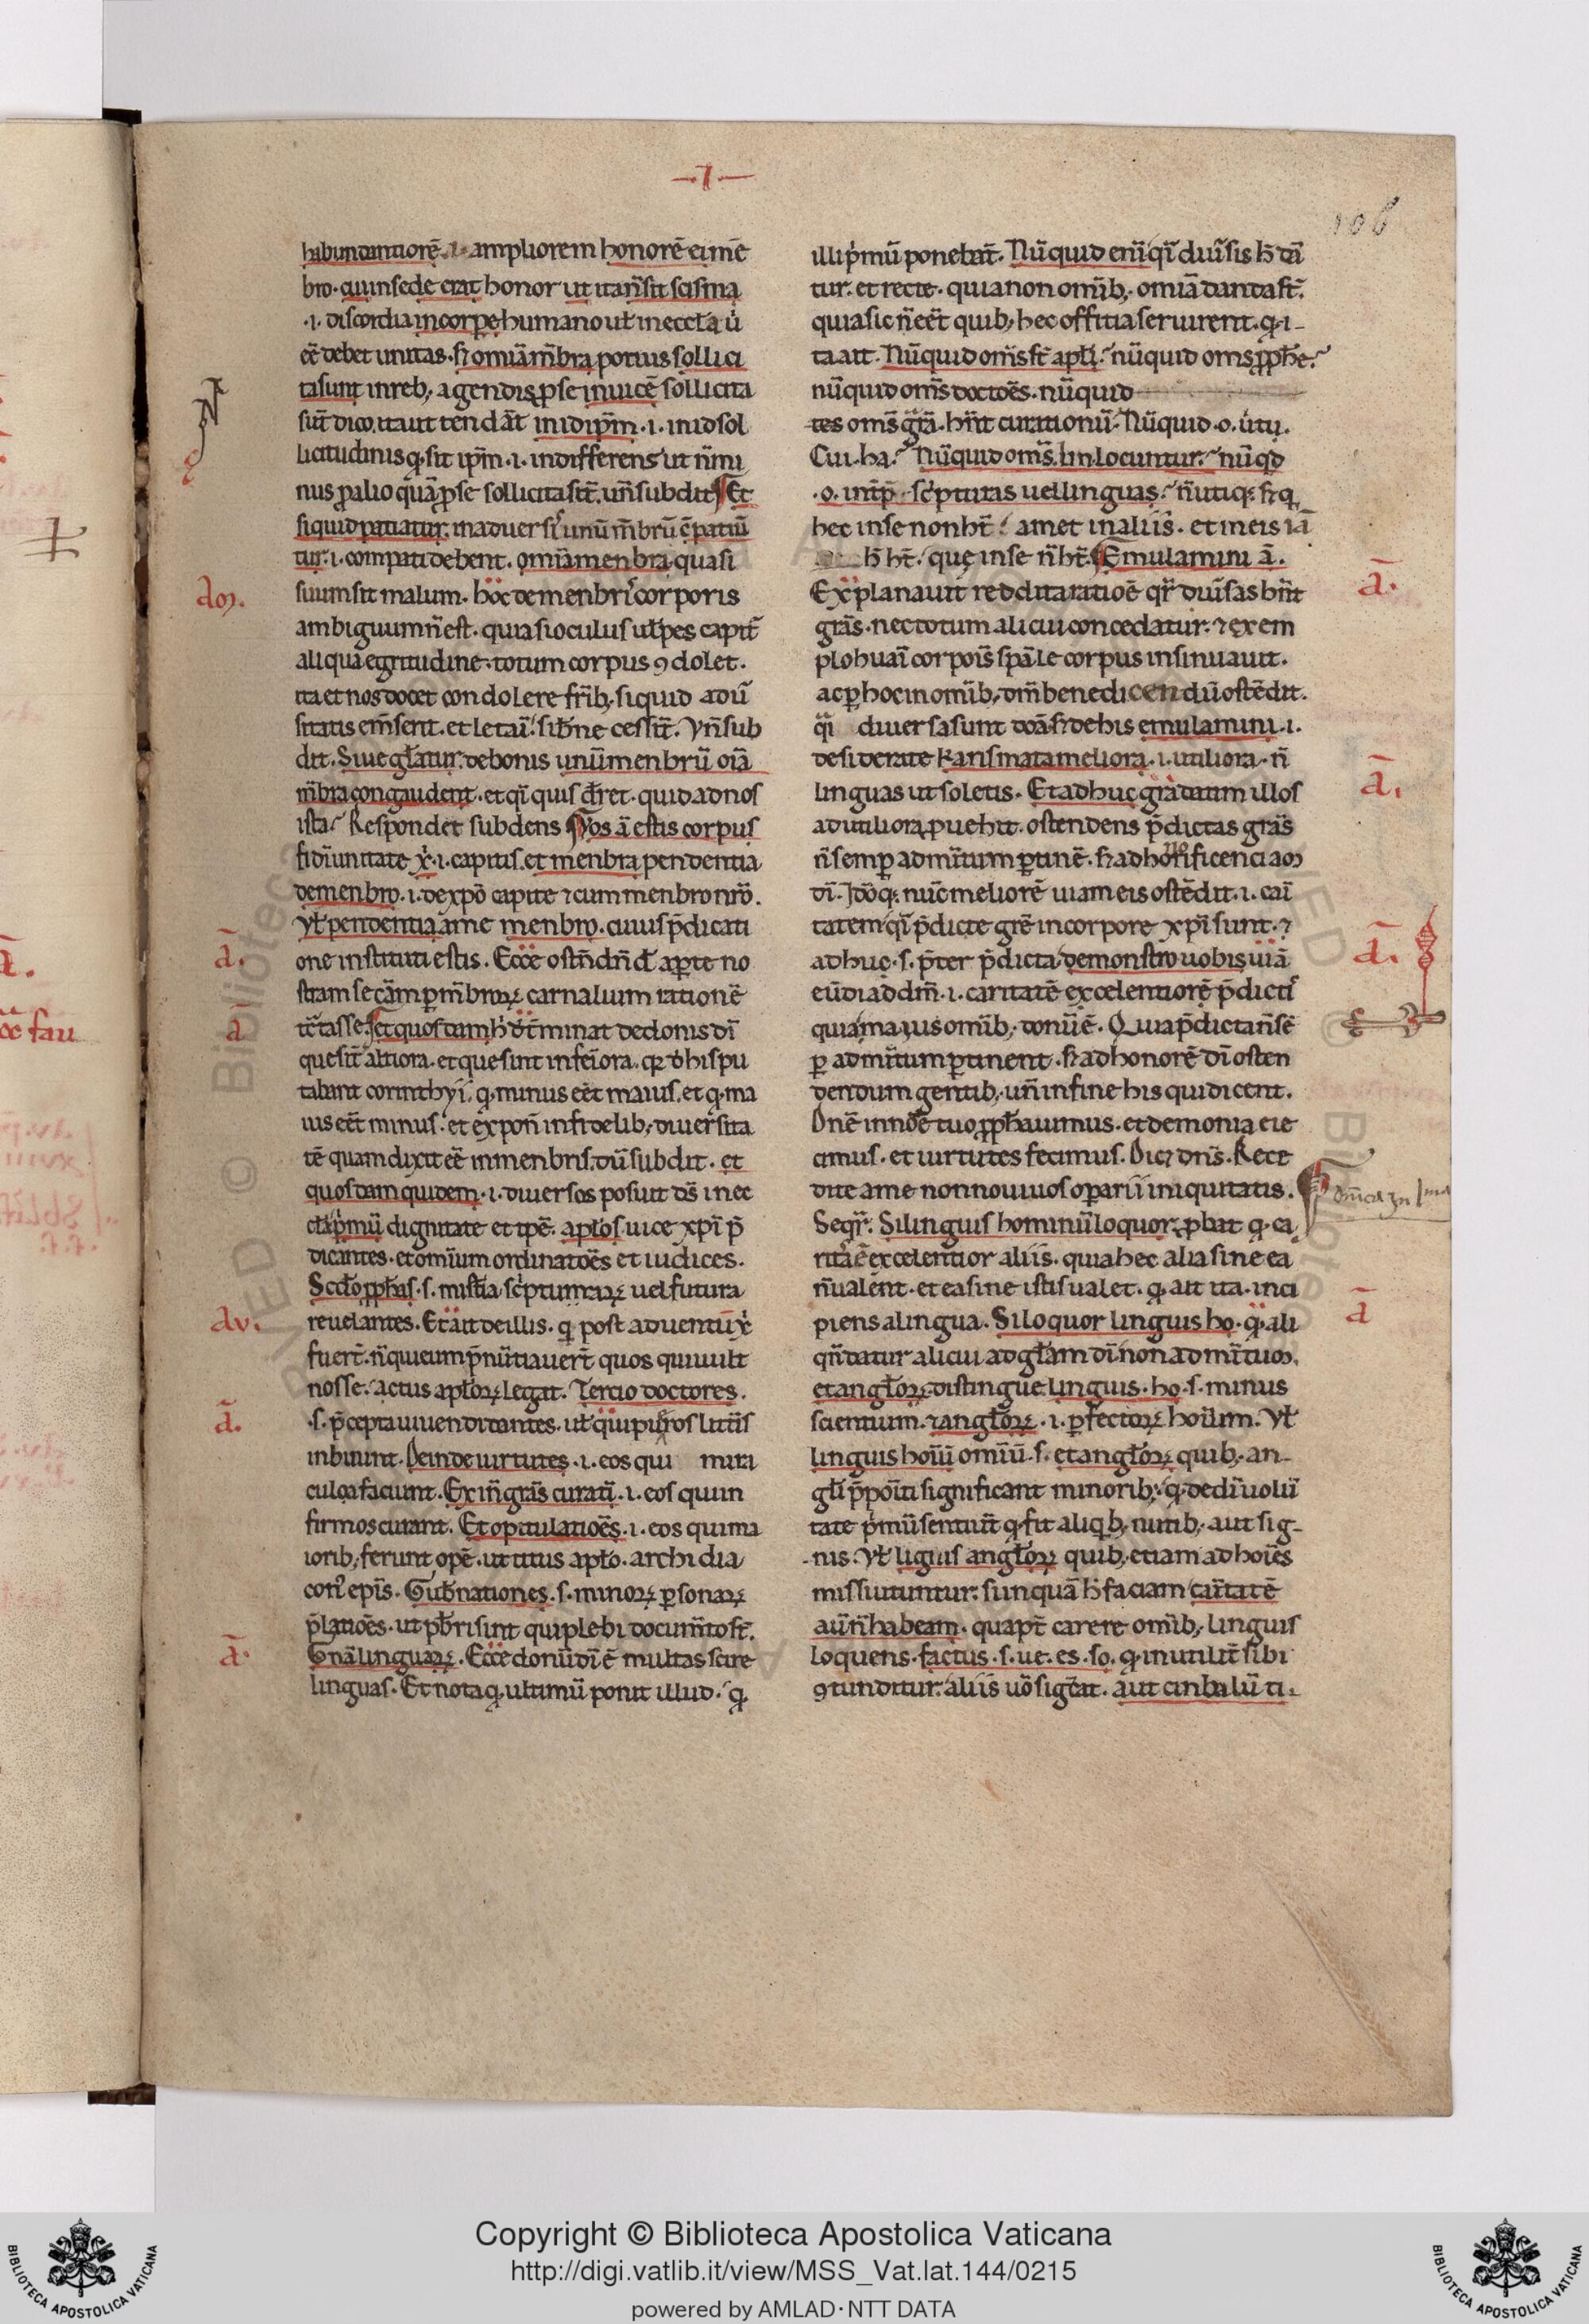 ·I·
106
habundantiorē .i. ampliorem honorē ei mē
bro. cui in sede erat honor ut ita n̄ sit scisma
.i. discordia in corpe humano ut in eccła ū
eē debet unitas. sꝫ omīa m̄bra potius sollici
ta sunt in rebꝫ agendis ꝑ se inuicē sollicita
sūt dico. ita ut tendāt in idip̄m .i. in id sol
licitudinis q̨ sit ip̄m .i. indifferens ut n̄ mi
nus ꝓ alio quā ꝓ se sollicita sīt. un̄ subdit Et
siquid patiatur. in aduersis unū m̄brū c̄patiū
tur .i. compati debent. omīa menbra quasi
suum sit malum. hoc de menbris corporis
ambiguum n̄ est. quia si oculus uł pes capit̄
aliqua egritudine. totum corpus ꝯdolet.
ita et nos docet condolere frībꝫ siquid aduͥ
sitatis em̄serit. et letari si bn̄e cessit̄. Vn̄ sub
dit. Siue głatur. de bonis unū menbrū oīa
m̄bra congaudent. et qī quis q̄ret. quid ad nos
ista? Respondet subdens Vos ā estis corpus
fidī unitate xp̄i .i. capitis. et menbra pendentia
de menbro .i. de xp̄o capite ⁊ cum menbro nr̄o.
Vł pendentia a me menbro. cuius p̄dicati
one instituti estis. Ecce ostn̄dn̄d' aperte no
stram se cām ꝑ m̄brorꝝ carnalium rationē
tc̄tasse. et quosdam h' dēt̄minat de donis dī
que sīt altiora. et que sint inferiora. qꝛ d' his pu
tabant corinthyī. q̨ minus eēt maius. et q̨ ma
ius eēt minus. et expon̄ in fidelibꝫ diuersita
tē quam dixit eē in menbris. dū subdit. et
quosdam quidem .i. diuersos posuit d̄s in ec
cła p̄mū dignitate et tp̄e. apłos uice xp̄i p̄
dicantes. et omīum ordinatōes et iudices.
Scdo ꝓph̄as .s. mist̄ia sc̄pturarꝝ uel futura
reuelantes. Et ait de illis. q̨ post aduentū xp̄i
fuer̄t. n̄ qui eum p̄nūtiauer̄t quos qui uult
nosse. actus apłorꝝ legat. Tercio doctores.
.s. p̄cepta uiuendi dantes. uł qui pueros litīis
inbuunt. Deinde uirtutes .i. eos qui mira
cula faciunt. Exin̄ grās curatī .i. eos qui in
firmos curant. Et opitulatiōes .i. eos qui ma
ioribꝫ ferunt opē. ut titus apło. archidia
coni epīs. Gub̄nationes .s. minorꝝ ꝑsonarꝝ
p̄latiōes. ut pb̄ri sint qui plebi documt̄o st̄.
Gn̄a linguarꝝ. Ecce donū dī ē multas scire
linguas. Et nota q̨ ultimū ponit illud. q̨
illi p̄mū ponebat̄. Nūquid enī qī diuīsis h' dā
tur. et recte. quia non omībꝫ omīa danda st̄.
quia sic n̄ eēt quibꝫ hec offitia seruirent. q̨ i
ta ait. Nūquid om̄s st̄ apłi? nūquid om̄s ꝓph̄e?
nūquid om̄s doctōes. nūquid
tes om̄s grā. hn̄t curationū. Nūquid .o. uītu.
Cui. ha? Nūquid om̄s. lin locuntur? nūq'd
.o. int̄p̄. sc̄pturas uel linguas? n̄ utiq; sꝫ q̨
hec in se non ht̄: amet in aliis. et in eis iā
h' ht̄. que in se n̄ ht̄. Emulamini ā.
Explanauit reddita ratiōe qr̄ diuīsas hn̄t
grās. nec totum alicui concedatur. ⁊ exem
plo huāī corpoīs spāle corpus insinuauit.
ac ꝑ hoc in omībꝫ dm̄ benedicendū ostēdit.
q̄i diuersa sunt dōā. sꝫ de his emulamini .i.
desiderate karismata meliora .i. utiliora. n̄
linguas ut soletis. Et adhuc gradatim illos
ad utiliora ꝓuehit. ostendens p̄dictas grās
n̄ semꝑ ad mītum ꝑtinē. sꝫ ad honorificenciam
dī. Idōq; nūc meliorē uiam eis ostēdit .i. cari
tatem. qī p̄dicte grē in corpore xp̄i sunt. ⁊
adhuc .s. p̄ter p̄dicta demonstro uobis uiā
eūdi ad dm̄ .i. caritatē excelentiorē p̄dictis
quia maius omībꝫ donū ē. Quia p̄dicta n̄ sē
ꝑ ad mītum ꝑtinent. sꝫ ad honorē dī osten
dendum gentibꝫ. un̄ in fine his qui dicent.
Dn̄e in noīe tuo ꝓph̄auimus. et demonia eie
cimus. et uirtutes fecimus. Dic; dn̄s. Rece
dite a me non noui uos operarii iniquitatis.
Seqr̄. Si linguis hominū loquor. ꝓbat q̨ ca
ritas ē excelentior aliis. quia hec alia sine ea
n̄ ualent. et ea sine istis ualet. q̨ ait ita. inci
piens a lingua. Si loquor linguis ho. q̨ ali
qn̄ datur alicui ad głam dī non ad mītum,
et angłorꝝ. distingue. linguis. ho .s. minus
scientium. ⁊ angłorꝝ .i. ꝑfectorꝝ hoīum. Vł
linguis hoīū omīū .s. et angłorꝝ quibꝫ an
głi p̄poīti significant minoribꝫ. q̨ de dī uolū
tate p̄mū sentiūt q̨ fit aliq'bꝫ nutibꝫ aut sig
nis. Vł liguis angłorꝝ quibꝫ etiam ad hoīes
missi utuntur. si nquā h' faciam caritatē
aūt n̄ habeam. qua p̄t carere omībꝫ linguis
loquens. factus .s. ue. es. so. q̨ inutilit̄ sibi
ꝯtunditur. aliis uō siḡcat. aut cinbalū ti
don.
ā.
ā
Av.
ā.
ā.
ā.
ā.
ā.
ā
Copyright © Biblioteca Apostolica Vaticana
http://digi.vatlib.it/view/MSS_Vat.lat.144/0215
powered by AMLAD·NTT DATA
BIBLIOTECA APOSTOLICA VATICANA
BIBLIOTECA APOSTOLICA VATICANA